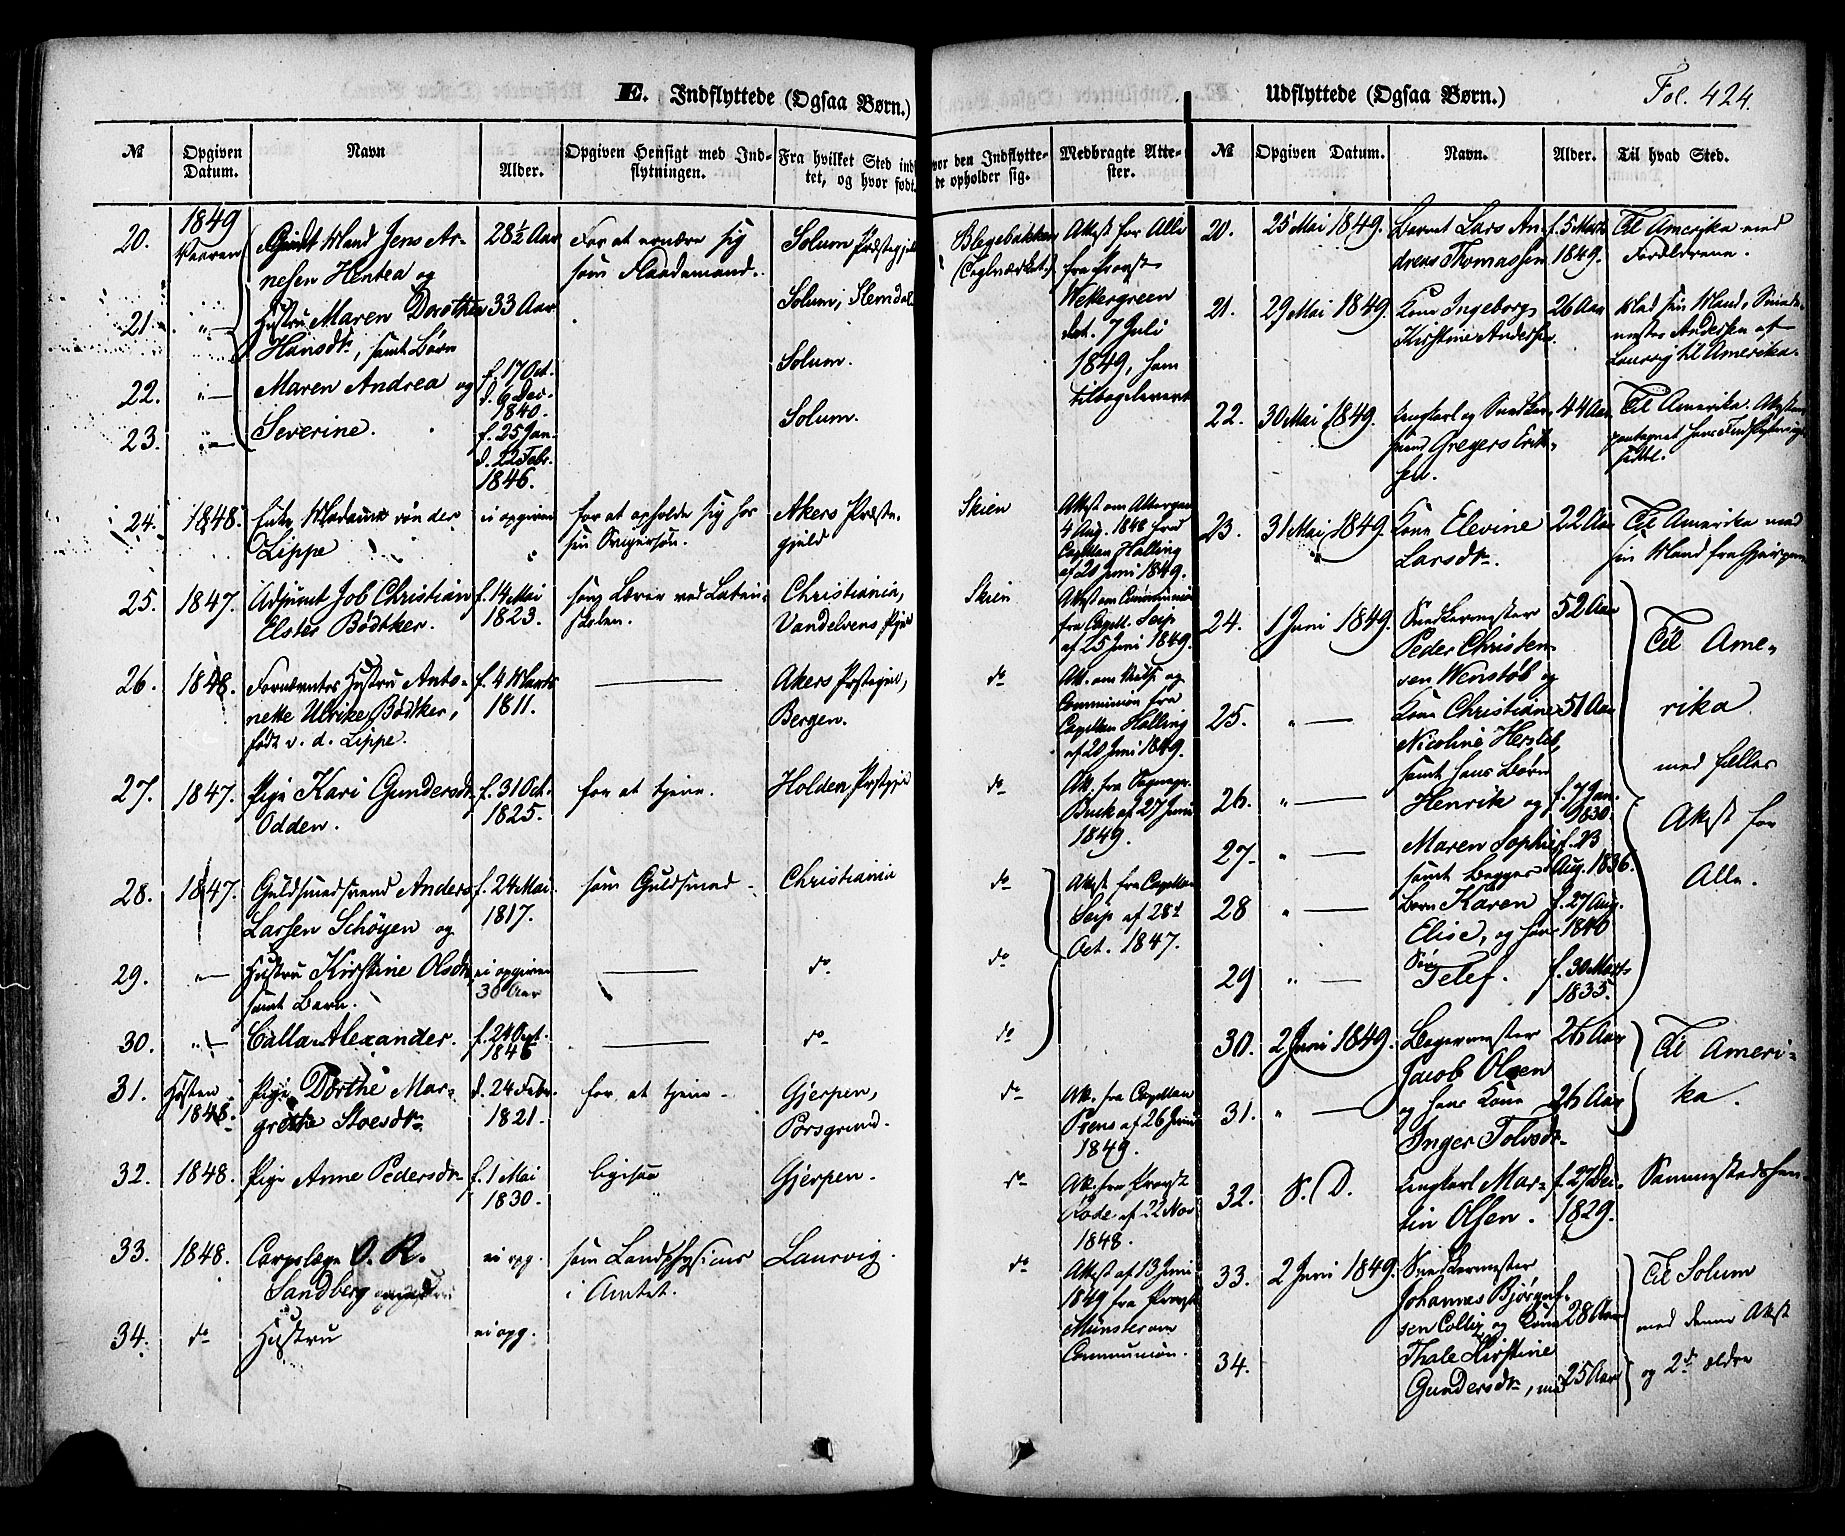 E. Indflyttede (Ogsaa Børn.)
No
Opgiven Datum.
Navn
Alder.
Opgiven Hensigt med Ind-
flytningen.
Fra hvilket Sted ind
tet, og hvor født.
vor den Indflytte-
de opholder sig.
Medbragte Atte-
ster.
20.
1849
Vaaren
Gift Mand Jens Ar-
nesen Hentea og
28½ Aar
For at ernære sig
som Flaademand.
Solum Præstegjeld
Blegebakken
(Teglværket.)
Attest for Alle
fra Provst
Wettergreen
dat. 7 Juli
1849, som
tilbageleveret
21.
"—
Hustru Maren Dorothea
Hansdtr, samt Børn
33 Aar
Solum, Slemdal
22.
"—
Maren Andrea og
f. 17 Oct.
d. 6 Dec.
1840.
Solum.
23.
"—
Severine.
f. 25 Jan.
d. 22 Febr.
1846.
Solum.
24.
1848.
Enke Madame von der
Lippe
ei opgiven
for at opholde sig hos
sin Svigersøn.
Akers Præste-
gjeld
Skien
Attest om Altergang
4 Aug. 1848 fra
Capellan Halling
af 20 Juni 1849.
25.
1847.
Adjunct Job Christian
Elster Bødtker.
f. 14 Mai
1823.
som Lærer ved Latin-
skolen.
Christiania,
Vandelvens Pgjeld
Skien
Attest om Communion
fra Capell. Seip
af 25 Juni 1849.
26.
1848.
Fornævntes Hustru Anto-
nette Ulrikke Bødtker,
født v. d. Lippe.
f. 4 Marts
1811.
—
Akers Prstgjeld,
Bergen.
do
Att. om Vielse og
Communion fra
Capellan Halling
af 20 Juni 1849.
27.
1847.
Pige Kari Gundersdtr
Odden.
f. 31 Oct.
1825.
for at tjene.
Holden Prstgjeld
do
Att. fra Sognepr.
Buck af 27 Juni
1849.
28.
1847.
Guldsmedsvend Anders
Larsen Schöyen og
f. 24 Mai
1817.
som Guldsmed
Christiania
do
Attest fra Capellan
Seip af 28d
Oct. 1847.
29.
"—
Hustru Kirstine Olsdtr
samt Barn.
ei opgiven
30 Aar
—
do
do
30.
"—
Calla Alexander.
f. 24 Sept.
1846
—
do
do
31.
Høsten
1848.
Pige Dorthe Mar-
grethe Stoesdtr
d. 24 Febr.
1821.
for at tjene.
Gjerpen,
Porsgrund.
do
Att. fra Capellan
Prens af 26 Juni
1849.
32.
1848.
Pige Anne Pedersdtr
f. 1 Mai
1830.
ligesaa
Gjerpen.
do
Att. fra Provst
Rode af 22 Nov.
1848.
33.
1848.
Corpslæge O. R.
Sandberg
ei opg.
som Landphysicus
i Amtet.
Laurvig
do
Attest af 13 Juni
1849 fra Provst
Münster om
Communion.
34.
do
Hustru
ei opg.
Udflyttede (Ogsaa Børn.)
Fol. 424.
No
Opgiven Datum.
Navn.
Alder.
Til hvad Sted.
20.
25 Mai 1849.
Barnet Lars An-
dreas Thomassen
f. 5 Marts
1849.
Til Amerika med
Forældrene.
21.
29 Mai 1849.
Kone Ingeborg
Kirstine Andersen
26 Aar
Med sin Mand, Smede-
mester Andersen af
Laurvig til Amerika.
22.
30 Mai 1849.
Ungkarl og Snedker-
svend Gregers Erik-
sen
44 Aar
Til Amerika. Attesten
paategnet hans Indflytnings
seddel.
23.
31 Mai 1849.
Kone Elevine
Larsdtr
22 Aar
Til Amerika med
sin Mand fra Gjerpen
24.
1 Juni 1849.
Snedkermester
Peder Christen-
sen Wenstøb og
52 Aar
Til Ame-
rika
med fælles
Attest for
Alle.
25.
"—
Kone Christiane
Nicoline Herslet,
samt hans Børn
51 Aar
26.
"—
Henrik og
f. 7 Jan.
1830.
27.
"—
Maren Sophie
samt Begges
f. 23
Aug. 1836.
28
"—
Barn Karen
Elise, og hans
f. 27 Aug.
1840
29
"—
Søn
Telef.
f. 30 Marts
1835.
30.
2 Juni 1849.
Bagermester
Jacob Olsen
26 Aar
Til Ameri-
ka.
31.
"—
og hans Kone
Inger Tolvsdtr
26 Aar
32.
S. D.
Ungkarl Mar-
tin Olsen.
f. 27 Dec.
1829.
Sammestedshen
33.
2 Juni 1849.
Snedkermester
Johannes Bjørn-
sen Collig og Kone
28 Aar
Til Solum
med denne Attest
og 2de ældre
34.
Thale Kirstine
Gundersdtr, med
25 Aar